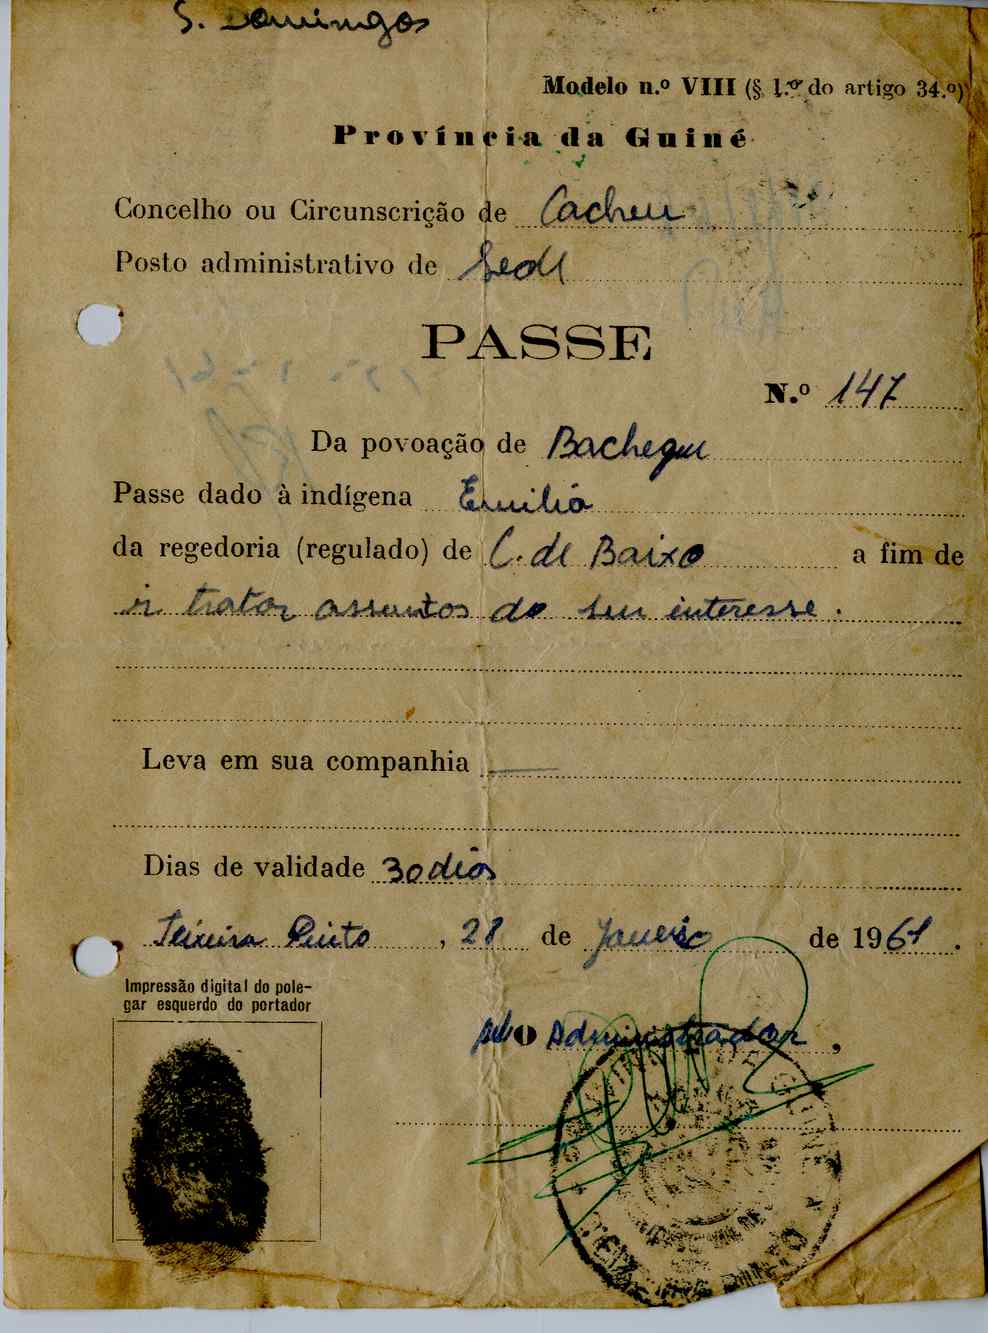 S. Domingos
Modelo n.º VIII (§ 1.º do artigo 34.º)
Província da Guiné
Concelho ou Circunscrição de Cacheu
Posto administrativo de Sede
PASSE
N.º 147
Da povoação de Bachegue
Passe dado à indígena Emilia
da regedoria (regulado) de C. de Baixo a fim de
ir tratar assuntos do seu interesse.
Leva em sua companhia —
Dias de validade 30 dias
Teixeira Pinto, 28 de Janeiro de 1961.
Impressão digital do pole-
gar esquerdo do portador
O Administrador,